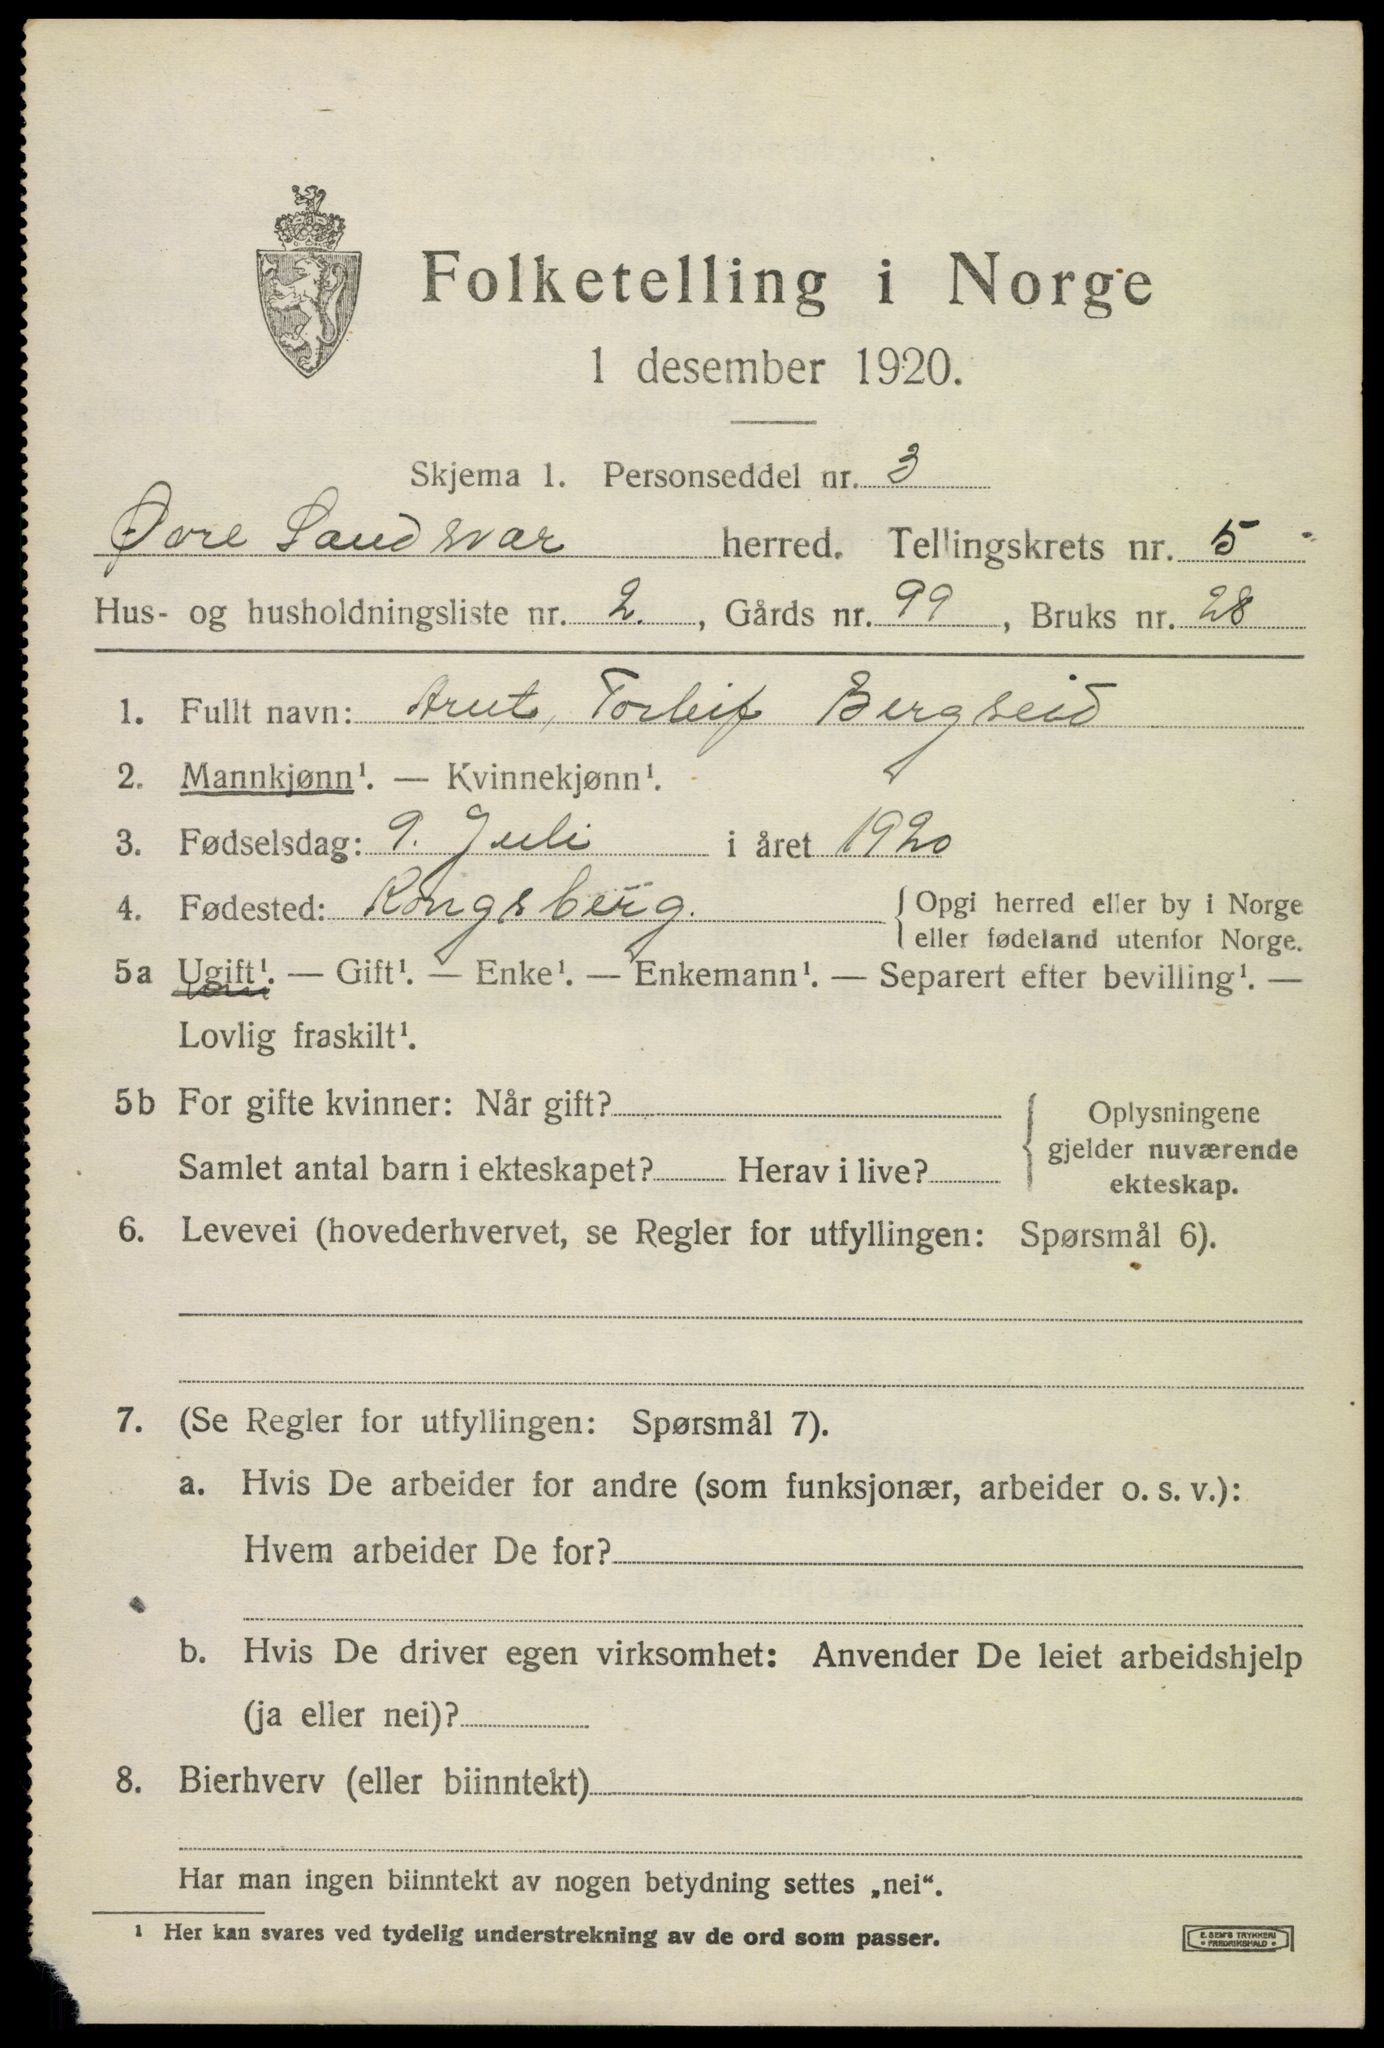 Folketelling i Norge
1 desember 1920.
Skjema 1. Personseddel nr. 3
Øvre Sandsvær herred. Tellingskrets nr. 5
Hus- og husholdningsliste nr. 2. , Gårds nr. 99 , Bruks nr. 28
1. Fullt navn: Arnt, Torleif Bergseid
2. Mannkjønn¹. — Kvinnekjønn¹.
3. Fødselsdag: 9. Juli i året 1920
4. Fødested: Kongsberg. { Opgi herred eller by i Norge
eller fødeland utenfor Norge.
5a Ugift¹. — Gift¹. — Enke¹. — Enkemann¹. — Separert efter bevilling¹. —
Lovlig fraskilt¹.
5b For gifte kvinner: Når gift?
Samlet antal barn i ekteskapet? Herav i live?
{ Oplysningene
gjelder nuværende
ekteskap.
6. Levevei (hovederhvervet, se Regler for utfyllingen: Spørsmål 6).
7. (Se Regler for utfyllingen: Spørsmål 7).
a. Hvis De arbeider for andre (som funksjonær, arbeider o. s. v.):
Hvem arbeider De for?
b. Hvis De driver egen virksomhet: Anvender De leiet arbeidshjelp
(ja eller nei)?
8. Bierhverv (eller biinntekt)
Har man ingen biinntekt av nogen betydning settes „nei“.
¹ Her kan svares ved tydelig understrekning av de ord som passer.
E. SEM'S TRYKKERI
• FREDRIKSHALD •